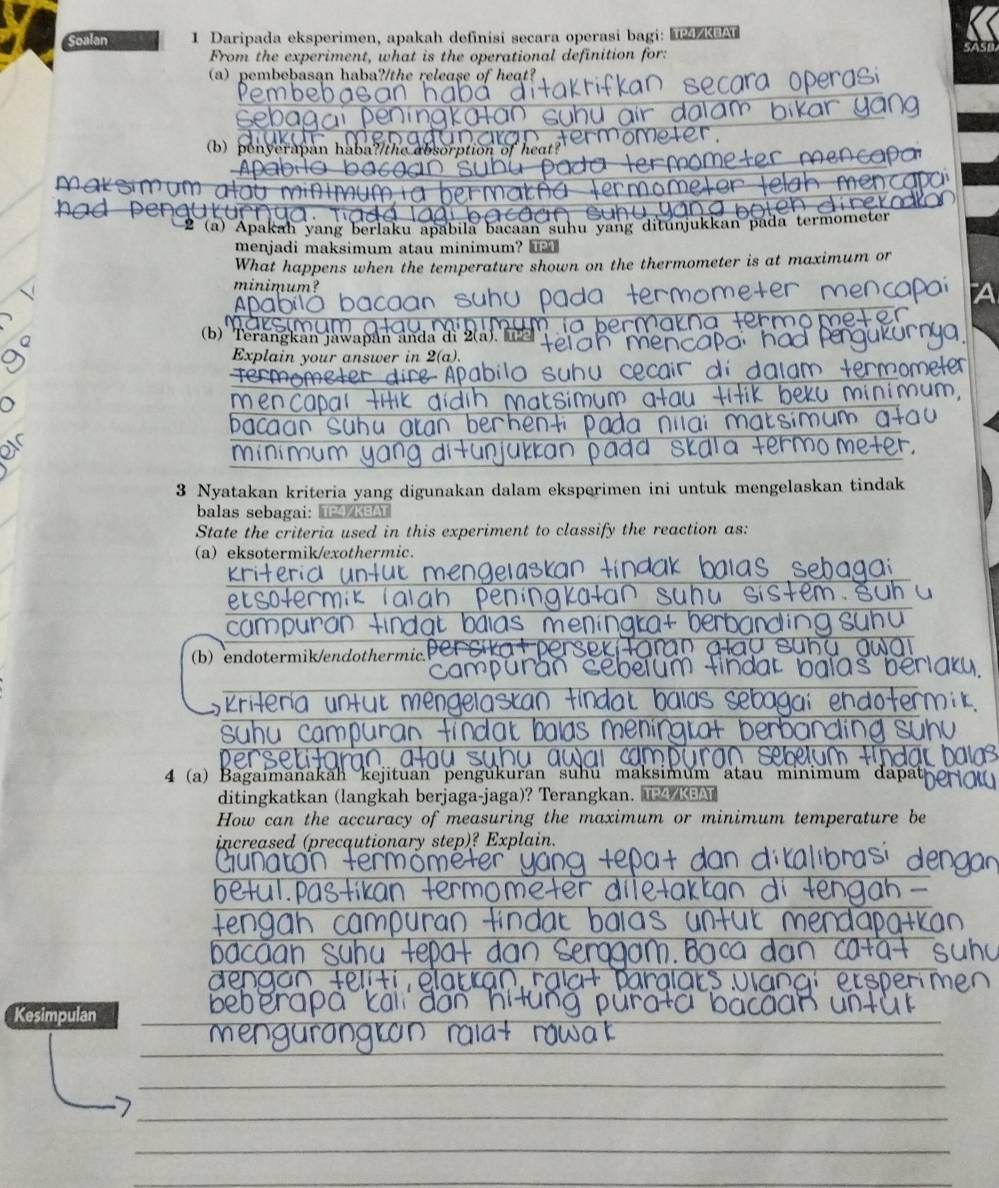 Soalan
1 Daripada eksperimen, apakah definisi secara operasi bagi: TP4/KBAT
SASBA
From the experiment, what is the operational definition for:
(a) pembebasan haba?/the release of heat?
Pembebasan haba ditakrifkan secara operasi
sebagai peningkatan suhu air dalam bikar yang
diukur menggunakan termometer.
(b) penyerapan haba?/the absorption of heat?
Apabila bacaan suhu pada termometer mencapai
maksimum atau minimum ia bermakna termometer telah mencapai
had pengukurnya. Tiada lagi bacaan suhu yang boleh direkodkan
2 (a) Apakah yang berlaku apabila bacaan suhu yang ditunjukkan pada termometer
menjadi maksimum atau minimum? TP1
What happens when the temperature shown on the thermometer is at maximum or
minimum?
Apabila bacaan suhu pada termometer mencapai
maksimum atau minimum ia bermakna termometer
(b) Terangkan jawapan anda di 2(a). TP2 telah mencapai had pengukurnya.
Explain your answer in 2(a).
termometer dire Apabila suhu cecair di dalam termometer
mencapai titik didih maksimum atau titik beku minimum,
bacaan suhu akan berhenti pada nilai maksimum atau
minimum yang ditunjukkan pada skala termometer.
3 Nyatakan kriteria yang digunakan dalam eksperimen ini untuk mengelaskan tindak
balas sebagai: TP4/KBAT
State the criteria used in this experiment to classify the reaction as:
(a) eksotermik/exothermic.
kriteria untuk mengelaskan tindak balas sebagai
eksotermik ialah peningkatan suhu sistem. Suhu
campuran tindak balas meningkat berbanding suhu
persikat persekitaran atau suhu awal
(b) endotermik/endothermic. campuran sebelum tindak balas berlaku.
kriteria untuk mengelaskan tindak balas sebagai endotermik.
suhu campuran tindak balas meningkat berbanding suhu
persekitaran atau suhu awal campuran sebelum tindak balas
berlaku
4 (a) Bagaimanakah kejituan pengukuran suhu maksimum atau minimum dapat
ditingkatkan (langkah berjaga-jaga)? Terangkan. TP4/KBAT
How can the accuracy of measuring the maximum or minimum temperature be
increased (precautionary step)? Explain.
Gunakan termometer yang tepat dan dikalibrasi dengan
betul. pastikan termometer diletakkan di tengah-
tengah campuran tindak balas untuk mendapatkan
bacaan suhu tepat dan seragam. Baca dan catat suhu
dengan teliti, elakkan ralat paralaks. Ulangi eksperimen
beberapa kali dan hitung purata bacaan untuk
mengurangkan ralat rawak
Kesimpulan